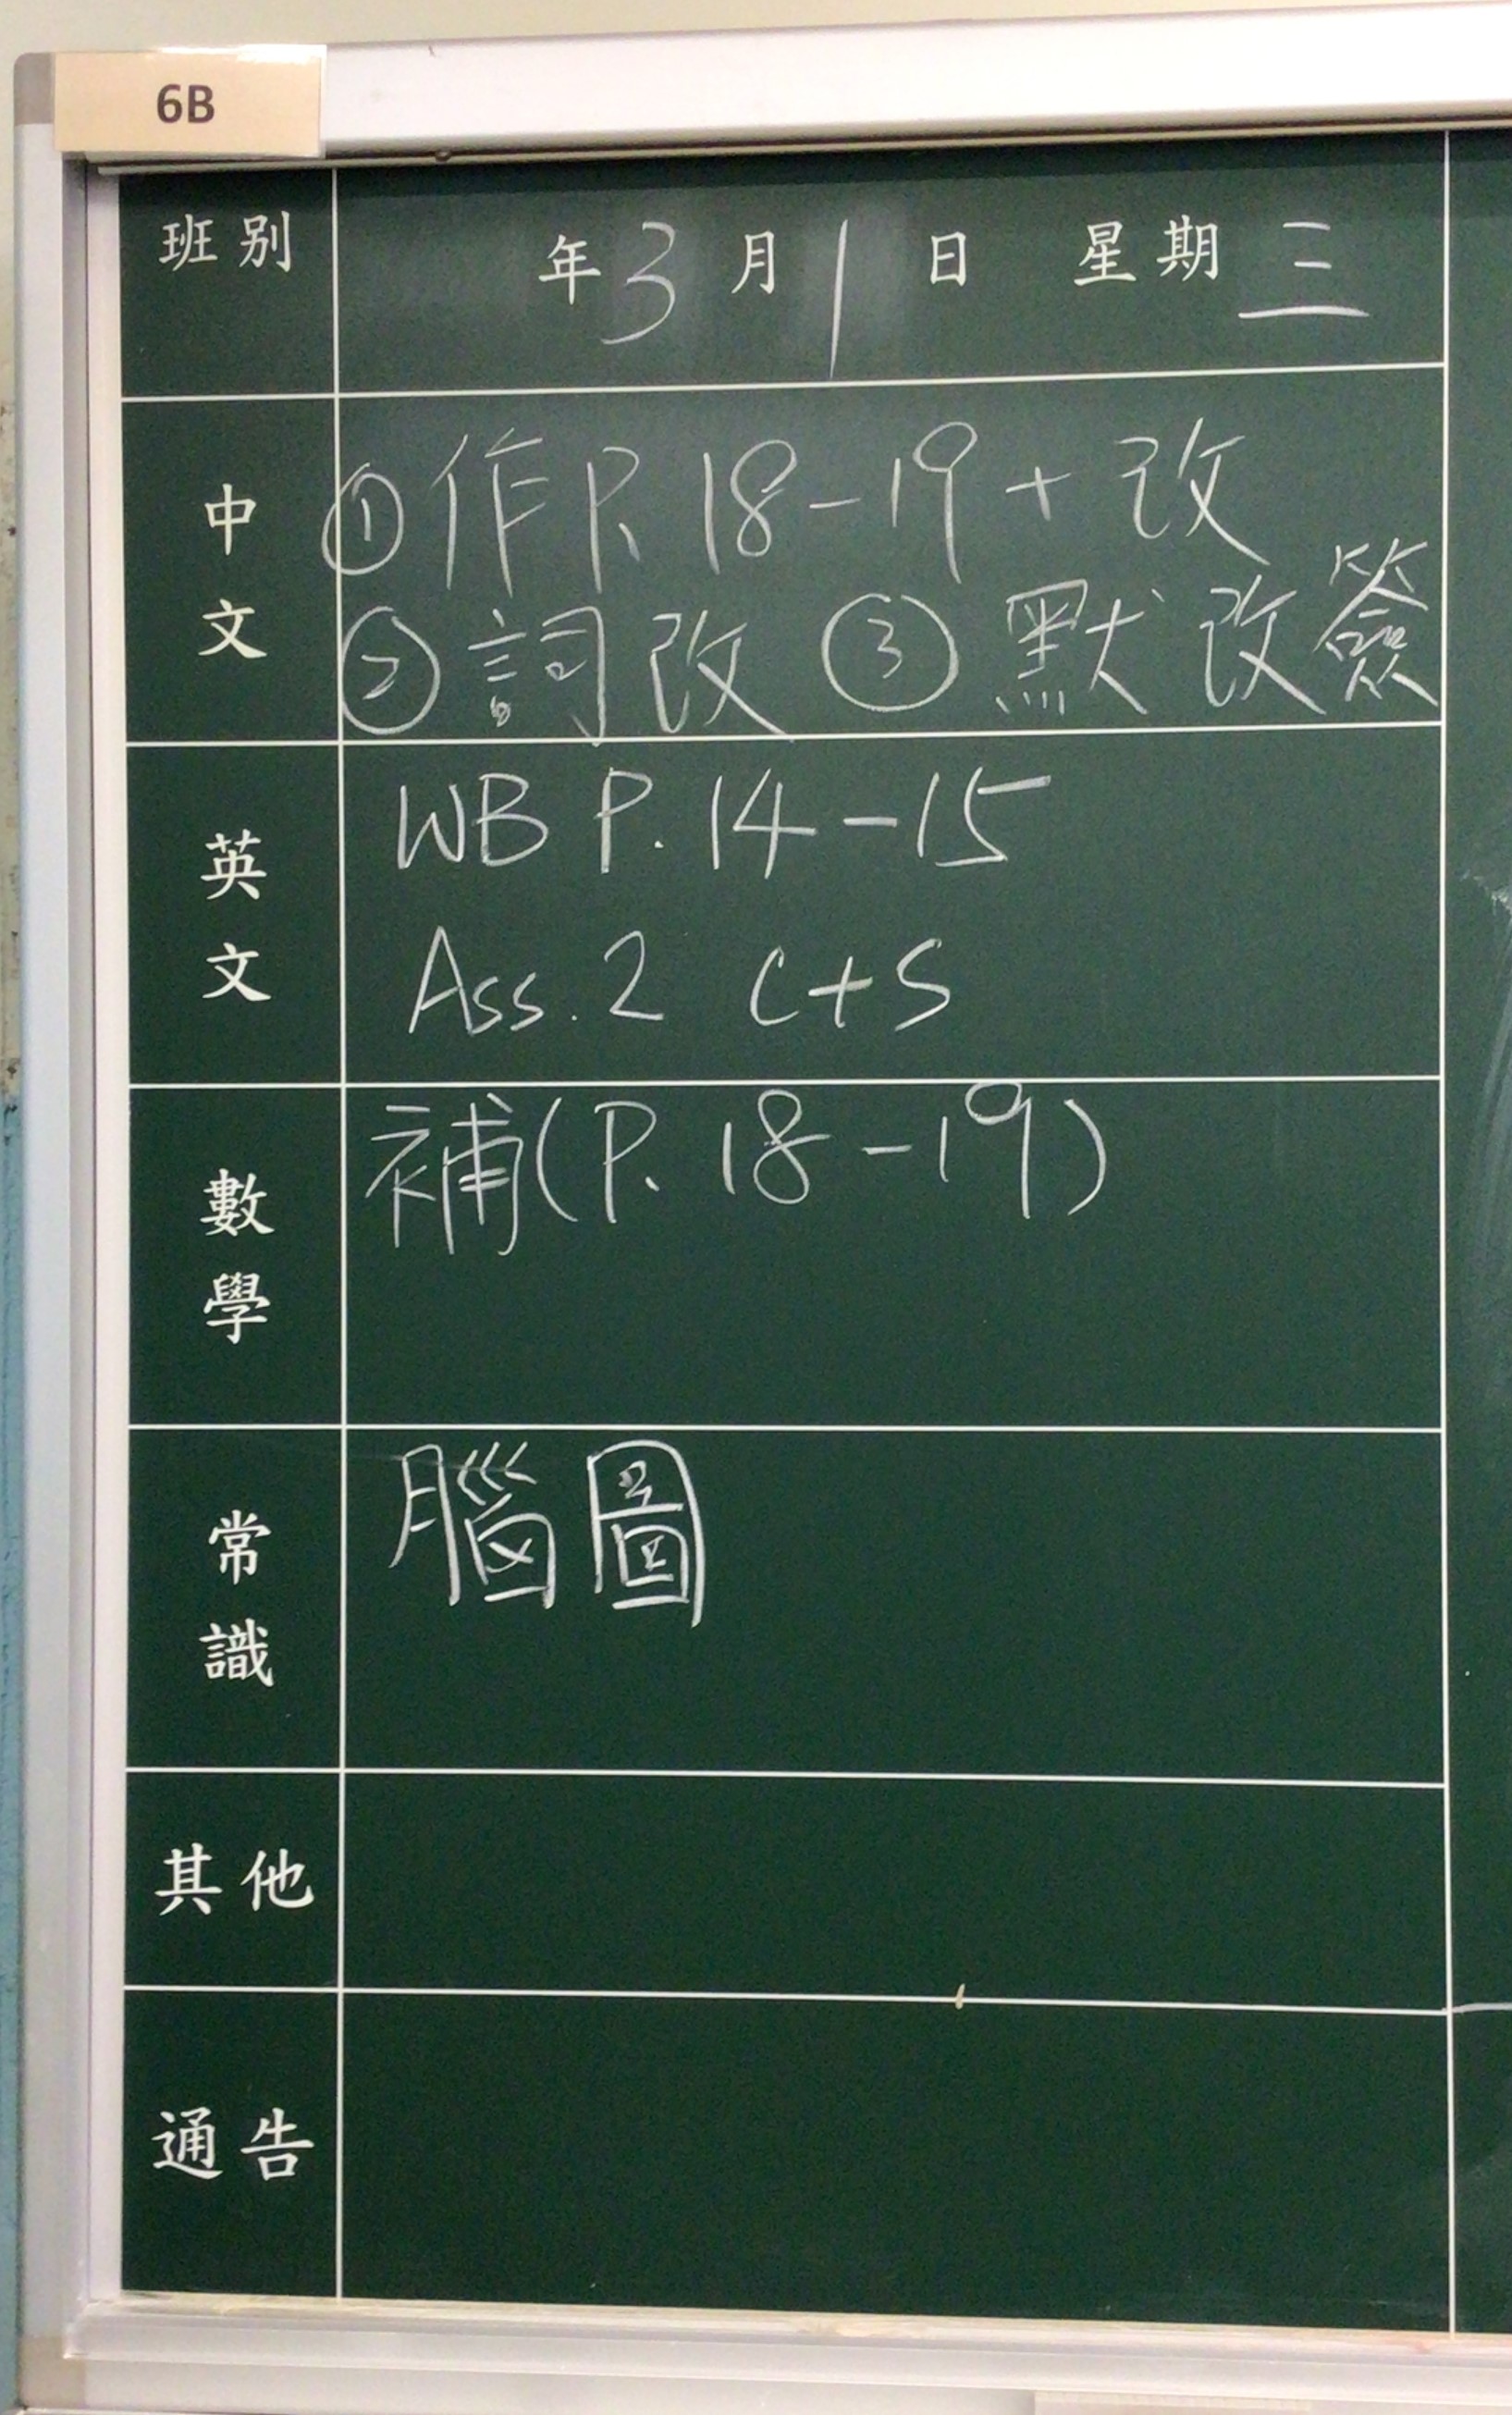 6B
班別 年3月1日 星期三
中文 ①作P.18-19+改
②詞改 ③默改簽
英文 WB P.14-15
Ass.2 C+S
數學 補(P.18-19)
常識 腦圖
其他
通告